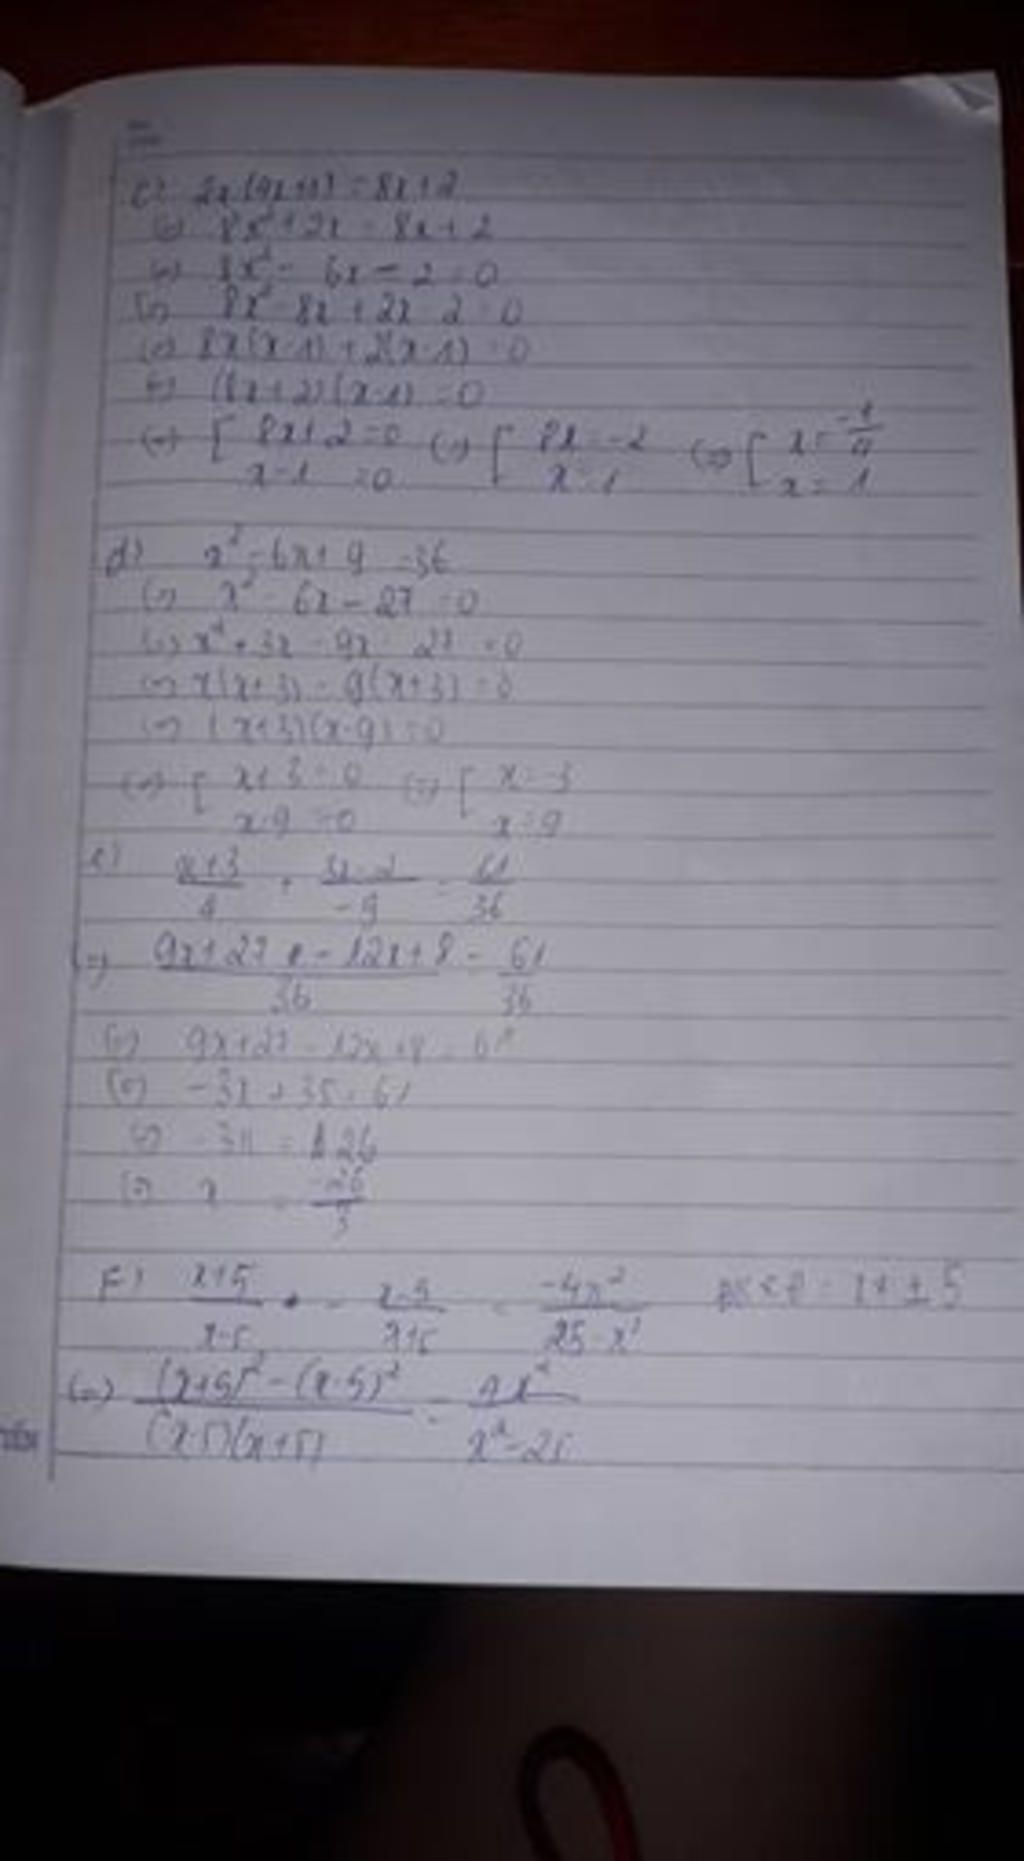 c) 2x(4x+1) = 8x+2
(=) 8x² + 2x = 8x + 2
(=) 8x² - 6x - 2 = 0
(=) 8x² - 8x + 2x - 2 = 0
(=) 8x(x-1) + 2(x-1) = 0
(=) (8x+2)(x-1) = 0
(=) [ 8x+2=0 (=) [ 8x = -2 (=) [ x = -1/4
x-1 = 0 x = 1 x = 1
d) x² - 6x + 9 = 36
(=) x² - 6x - 27 = 0
(=) x² + 3x - 9x - 27 = 0
(=) x(x+3) - 9(x+3) = 0
(=) (x+3)(x-9) = 0
(=) [ x+3 = 0 (=) [ x = -3
x-9 = 0 x = 9
e) x+3/4 + 3x-2/-9 = 61/36
(=) 9x+27 - 12x+8/36 = 61/36
(=) 9x+27 - 12x+8 = 61
(=) -3x + 35 = 61
(=) -3x = 26
(=) x = -26/3
F) x+5/x-5 - x-5/x+5 = -4x²/25-x² x ≠ ± 5
(=) (x+5)² - (x-5)²/(x-5)(x+5) = 4x²/x²-25